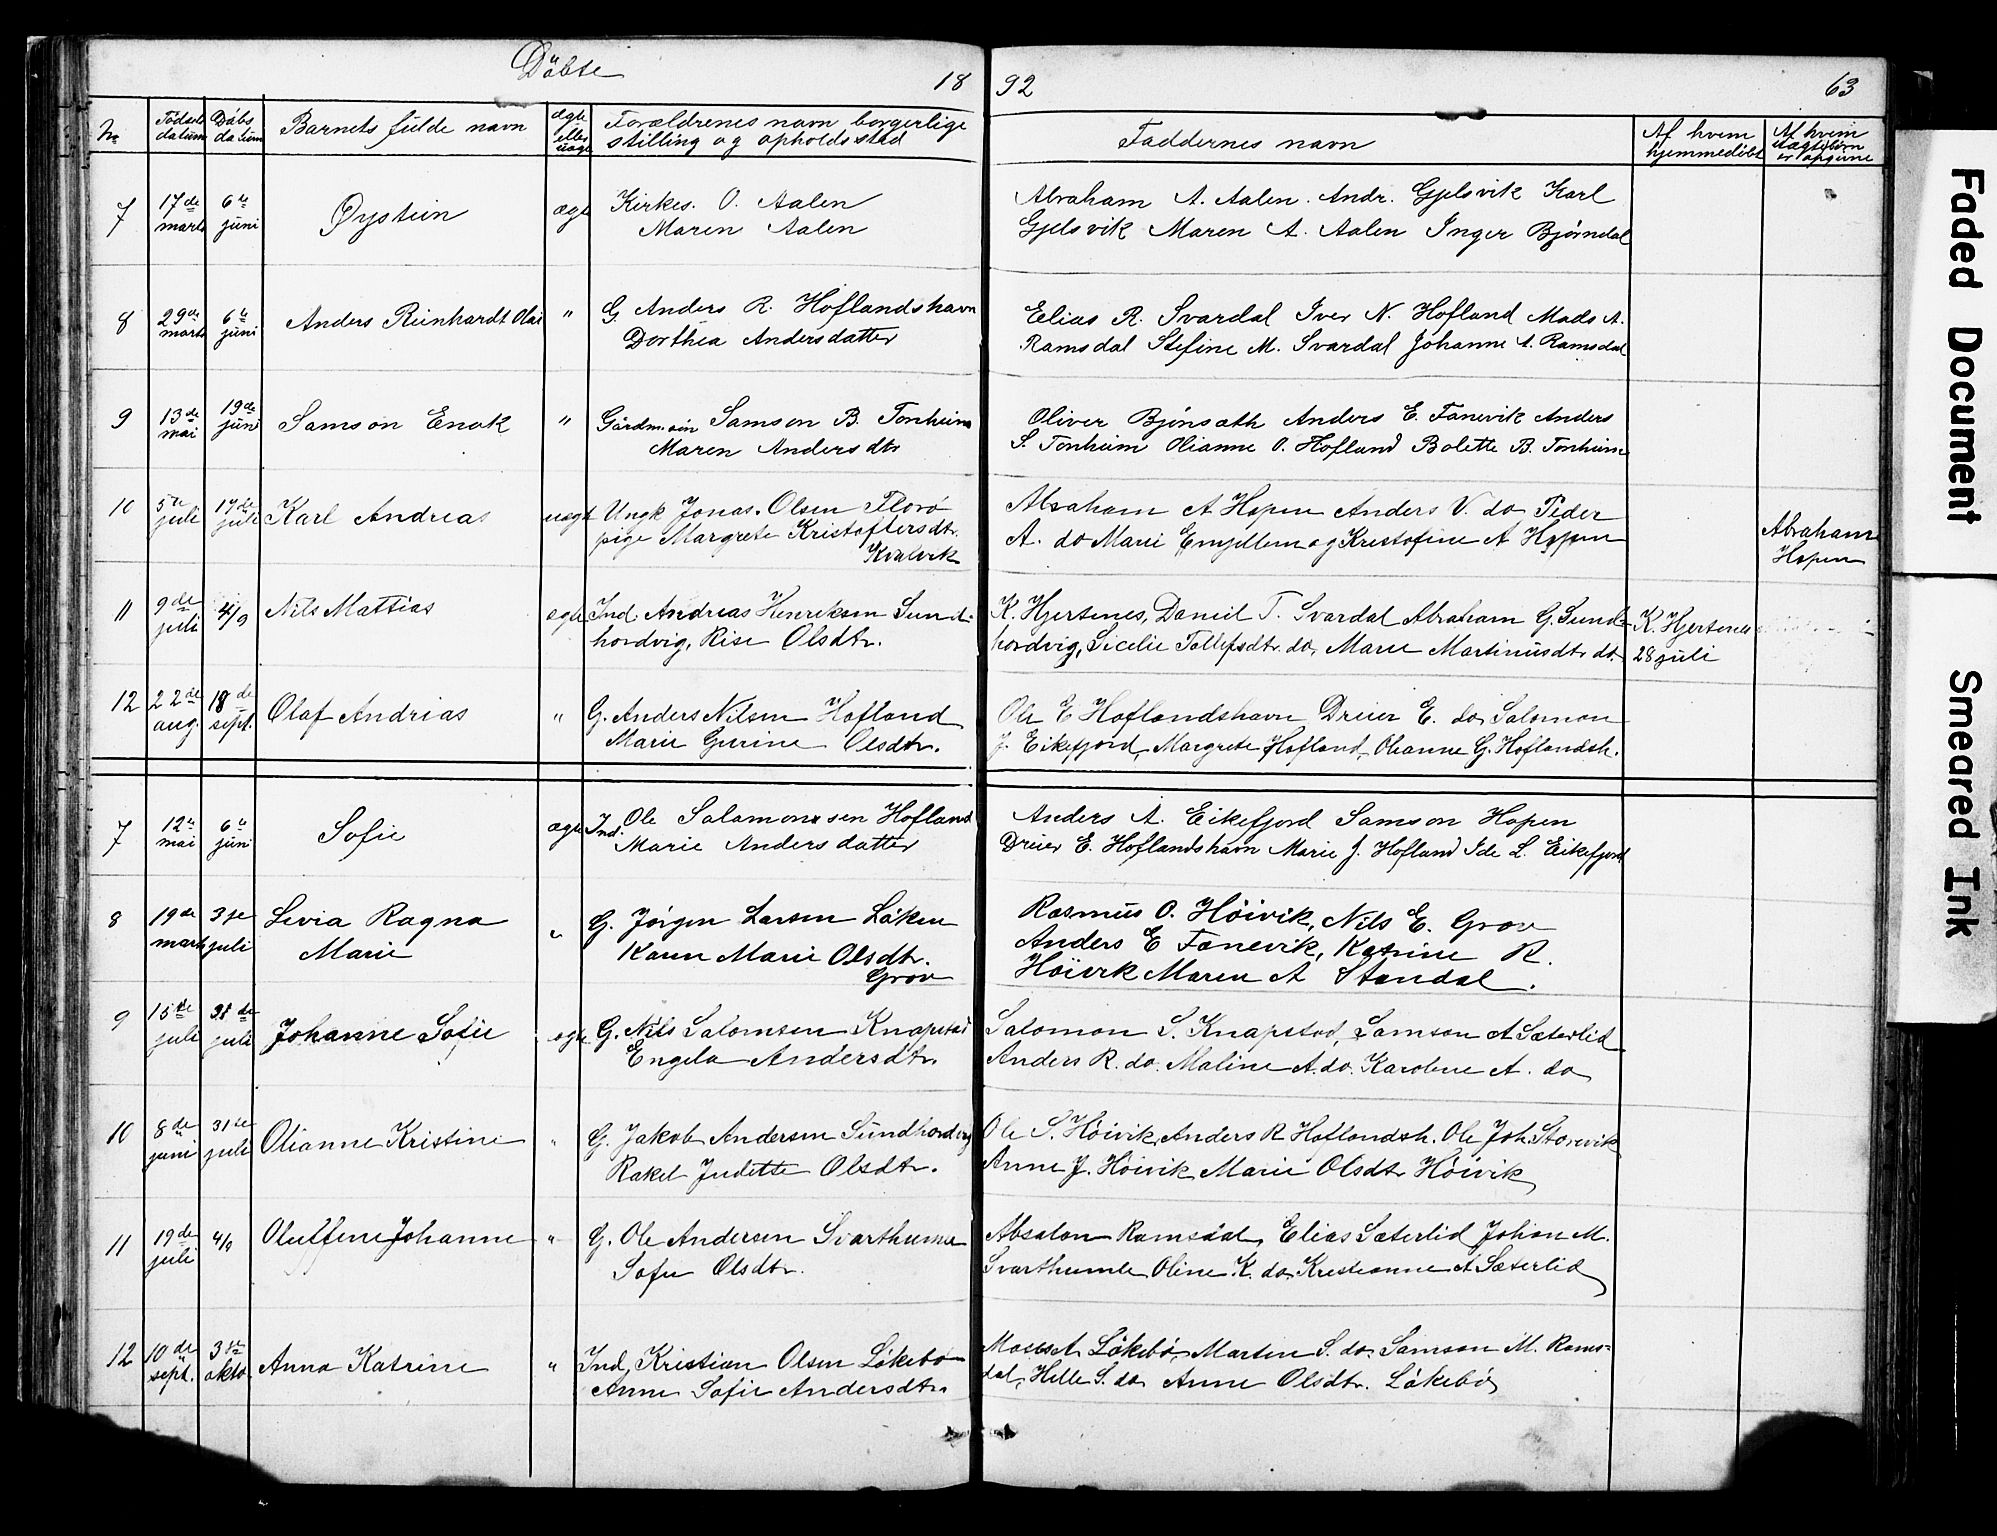 Döbte 18 92 63
No Födsels Döbs Barnets fulde navn ægte Forældrenes navn borgerlige Faddernes navn Af hvem Af hvem
datum datum eller uægte stilling og opholdssted hjemmedöbt uægtebörn er opgivne
7 17de 6te Øystein ægte Kirkes. O. Aalen Abraham A. Aalen. Andr. Gjelsvik Karl
marts juni Maren Aalen Gjelsvik Maren A. Aalen Inger Bjørndal
8 29de 6te Anders Reinhardt Olai " G. Anders R. Hoflandshavn Elias R. Svardal Iver N. Hofland Mads A.
marts juni Dorthea Andersdatter Ramsdal Stefine M. Svardal Johanne A. Ramsdal
9 13de 19de Samson Enok " Gårdm. sön Samson B. Tonheim Oliver Bjönsæth Anders E. Fanevik Anders
mai juni Maren Andersdtr S. Tonheim Olianne O. Hofland Bolette B. Tonheim
10 5te 17de Karl Andreas uægte Ungk Jonas. Olsen Florø Abraham A Hopen Anders V. do Peder
juli juli pige Margrete Kristoffersdtr. A. do Marie og Kristofine A Hopen Abraham
Kvalvik Hopen
11 9de 4/9 Nils Mattias ægte Ind. Andreas Henriksen Sund- K. Hjertenes, Daniel T. Svardal Abraham G. Sund- K. Hjertenes
juli hordvig, Rise Olsdtr. hordvig, Sicelie Tollefsdtr. do, Marie Martinusdtr do. 28 juli
12 22de 18de Olaf Andrias " G. Anders Nilsen Hofland Ole E Hoflandshavn Dreier E. do Salomon
aug. sept. Marie Gurine Olsdtr. J. Eikefjord, Margrete Hofland, Olianne G. Hoflandsh.
7 12te 6te Sofie ægte Ind. Ole Salomonsen Hofland Anders A. Eikefjord Samson Hopen
mai juni Marie Andersdatter Dreier E. Hoflandshavn Marie J. Hofland Ide L. Eikefjord
8 19de 3je Livia Ragna " G. Jörgen Larsen Löken Rasmus O. Höivik, Nils E. Grov
marts juli Marie Karen Marie Olsdtr. Anders E Fanevik, Katrine R.
Grov Höivik Maren A Standal.
9 15de 31de Johanne Sofie ægte G. Nils Salomsen Knapstad Salomon S. Knapstad, Samson A Sæterlid
juli juli Engela Andersdtr. Anders R. do. Maline A. do. Karoline A. do
10 8de 31te Olianne Kristine " G. Jakob Andersen Sundhordvig Ole S. Höivik, Anders R Hoflandsh. Ole Joh. Storevik
juni juli Rakel Judette Olsdtr. Anne J. Höivik Marie Olsdtr Höivik
11 19de 4/9 Oluffene Johanne " G. Ole Andersen Svarthumle Absalon Ramsdal, Elias Sæterlid Johan M.
juli Sofie Olsdtr. Svarthumle Oline K. do Kristianne A Sæterlid
12 10de Anna Katrine " Ind, Kristian Olsen Lökebö Løkebø, Martin S. do. Samson M. Rams-
sept. okto. Anne Sofie Andersdtr. dal, Helle S. do Anne Olsdtr. Lökebö
Faded Document
Smeared Ink